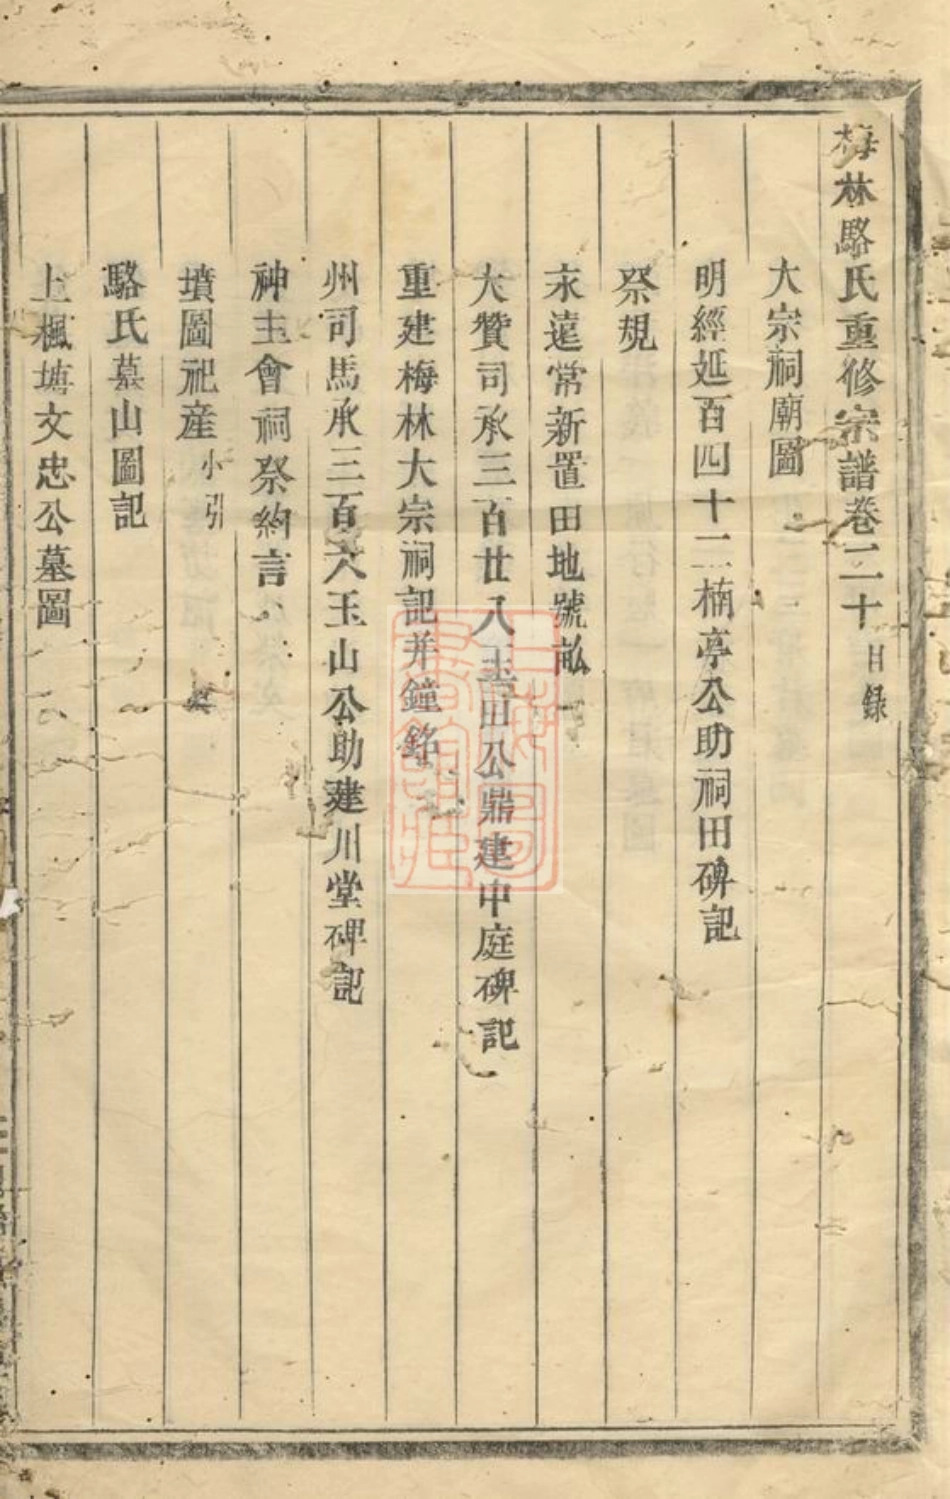 梅林駱氏重修宗譜卷二十目錄
大宗祠廟圖
明經延百四十二楠亭公助祠田碑記
祭規
永遠常新置田地號畝
大贊司承三百廿八 田公鼎建中庭碑記
重建梅林大宗祠記并鐘銘
州司馬承三百六玉山公助建川堂碑記
神主會祠祭約言
墳圖祀產小引
駱氏墓山圖記
上楓塘文忠公墓圖